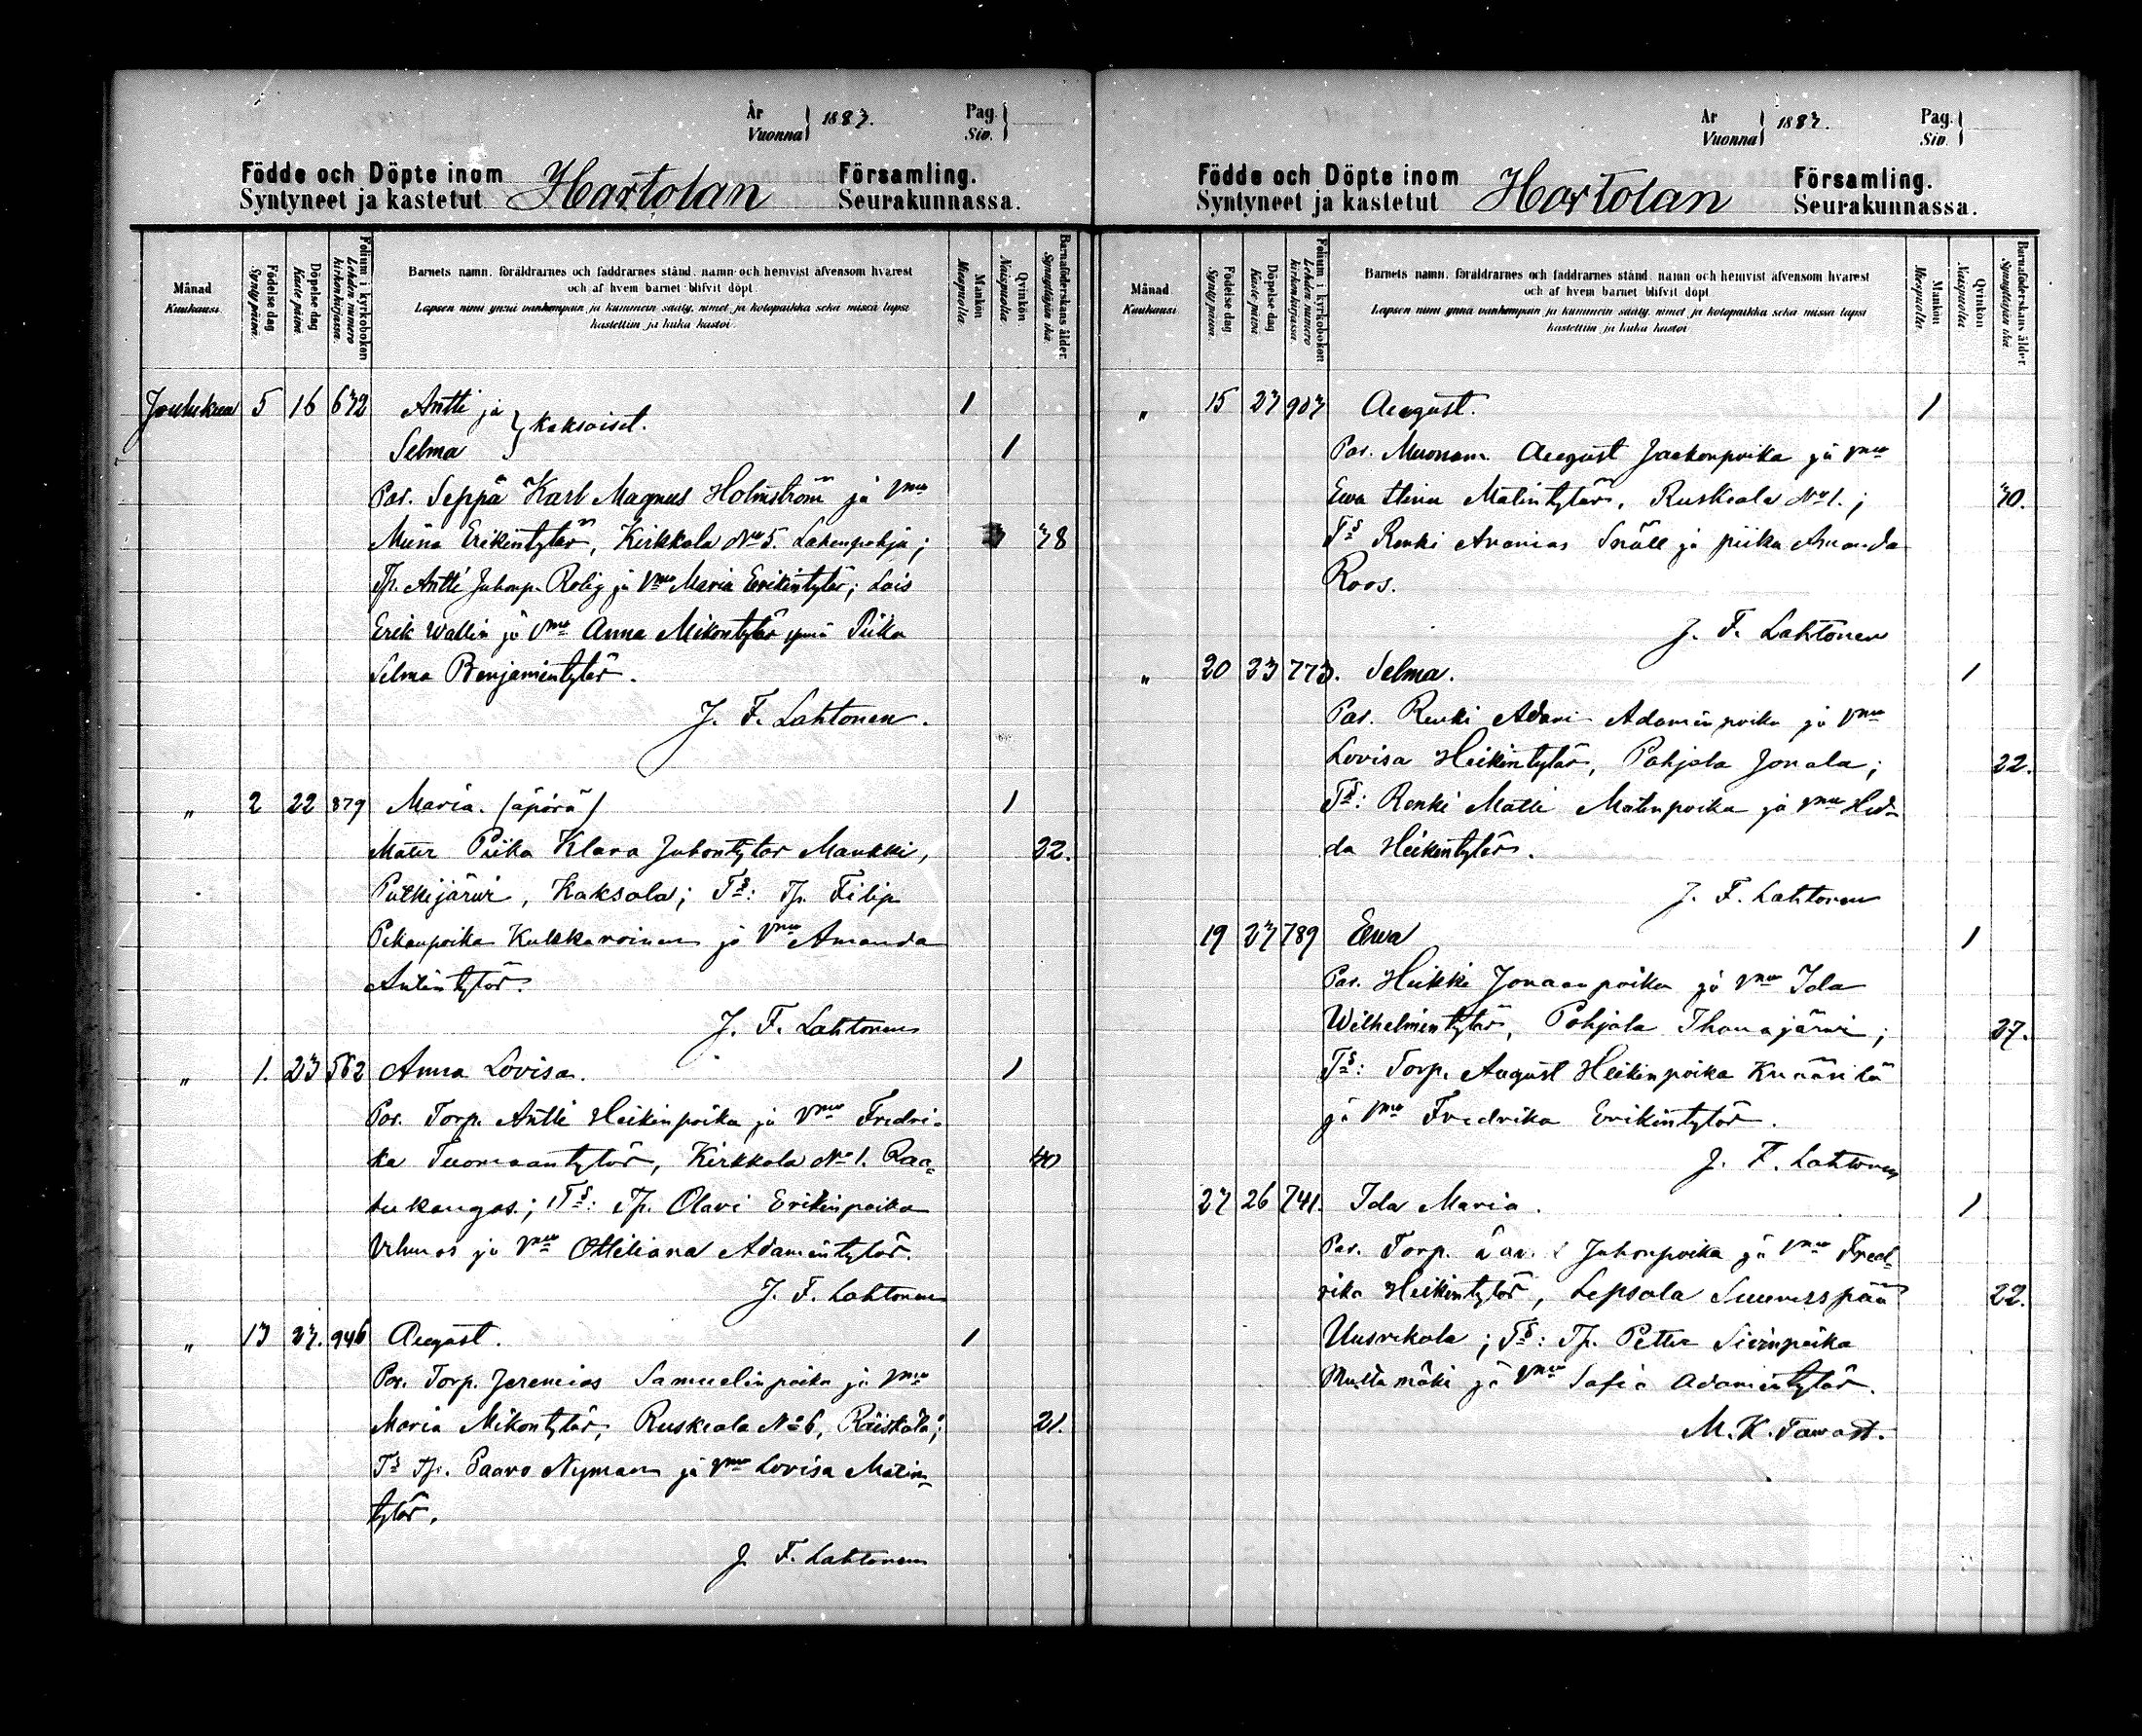 År
Vuonna } 1883. Pag.
Siv. }
Födde och Döpte inom Hartolan Församling.
Syntyneet ja kastetut Seurakunnassa.
Månad
Kuukausi
Födelse dag
Synty päivä.
Döpelse dag
Kaste päivä.
Folium i kyrkobokon
Lehden numero
kirkonkirjassa.
Barnets namn, föräldrarnes och faddrarnes stånd, namn och hemvist äfvensom hvarest
och af hvem barnet blifvit döpt.
Lapsen nimi ynnä vanhempain ja kummein sääty, nimet ja kotopaikka sekä missä lapsi
kastettiin ja kuka kastoi.
Mankön
Miespuolta.
Qvinkön
Naispuolta.
Barnaföderskans ålder.
Synnyttäjän ikä.
Joulukuu 5 16 632 Antti ja } kaksoiset. 1
Selma 1
Par. Seppä Karl Magnus Holmström ja Vmo
Miina Erikintytär, Kirkkola No 5. Lakenpohja; 38
Tp. Antti Juhonp. Rolig ja Vmo Maria Erikintytär; Lois
Erik Wallin ja Vmo Anna Mikontytär ynnä Piika
Selma Benjamintytär.
J. F. Lahtonen.
" 2 22 879 Maria. (äpärä) 1
Mater Piika Klara Juhontytär Maukki, 22.
Putkijärwi, Kaksola; Ts: Tp. Filip
Pekanpoika Kukkaroinen ja Vmo Amanda
Antintytär.
J. F. Lahtonen
" 1. 23 562 Anna Lovisa. 1
Par. Torp. Antti Heikinpoika ja Vmo Fredri-
ka Tuomaantytär, Kirkkola No 1. Raa- 40
tukangas; Ts: Tp. Olavi Erikinpoika
ja Vmo Ottiliana Adamintytär.
J. F. Lahtonen
" 13 23. 946 August. 1
Par. Torp. Jeremias Samuelinpoika ja Vmo
Maria Mikontytär, Ruskeala No 6, Räiskälä; 21.
Ts Tp. Paavo Nyman ja Vmo Lovisa Matin-
tytär.
J. F. Lahtonen
År
Vuonna } 1883. Pag.
Siv. }
Födde och Döpte inom Hartolan Församling.
Syntyneet ja kastetut Seurakunnassa.
Månad
Kuukausi
Födelse dag
Synty päivä.
Döpelse dag
Kaste päivä.
Folium i kyrkobokon
Lehden numero
kirkonkirjassa.
Barnets namn, föräldrarnes och faddrarnes stånd, namn och hemvist äfvensom hvarest
och af hvem barnet blifvit döpt.
Lapsen nimi ynnä vanhempain ja kummein sääty, nimet ja kotopaikka sekä missä lapsi
kastettiin ja kuka kastoi.
Mankön
Miespuolta.
Qvinkön
Naispuolta.
Barnaföderskans ålder.
Synnyttäjän ikä.
" 15 23 903 August. 1
Par. Muonam. August Jaakonpoika ja Vmo
Ewa Stina Matintytär, Ruskeala No 1.; 30.
Ts Renki Ananias Snäll ja piika Amanda
Roos.
J. F. Lahtonen
" 20 23 773. Selma. 1
Par. Renki Adam Adaminpoika ja Vmo
Lovisa Heikintytär, Pohjola Jonala; 22.
Ts: Renki Matti Matinpoika ja Vmo Hed-
da Heikintytär.
J. F. Lahtonen
19 23 789 Ewa 1
Par. Heikki Jonaanpoika ja Vmo Ida
Wilhelmintytär, Pohjola Ihanajärwi; 27.
Ts: Torp. August Heikinpoika
ja Vmo Fredrika Erikintytär.
J. F. Lahtonen
23 26 741. Ida Maria. 1
Par. Torp. Juhonpoika ja Vmo Fred-
rika Heikintytär, Lepsala 22.
Uusikola; Ts: Tp. Petter Siivinpoika
Multamäki ja Vmo Sofia Adamintytär.
M. K. Tawast.